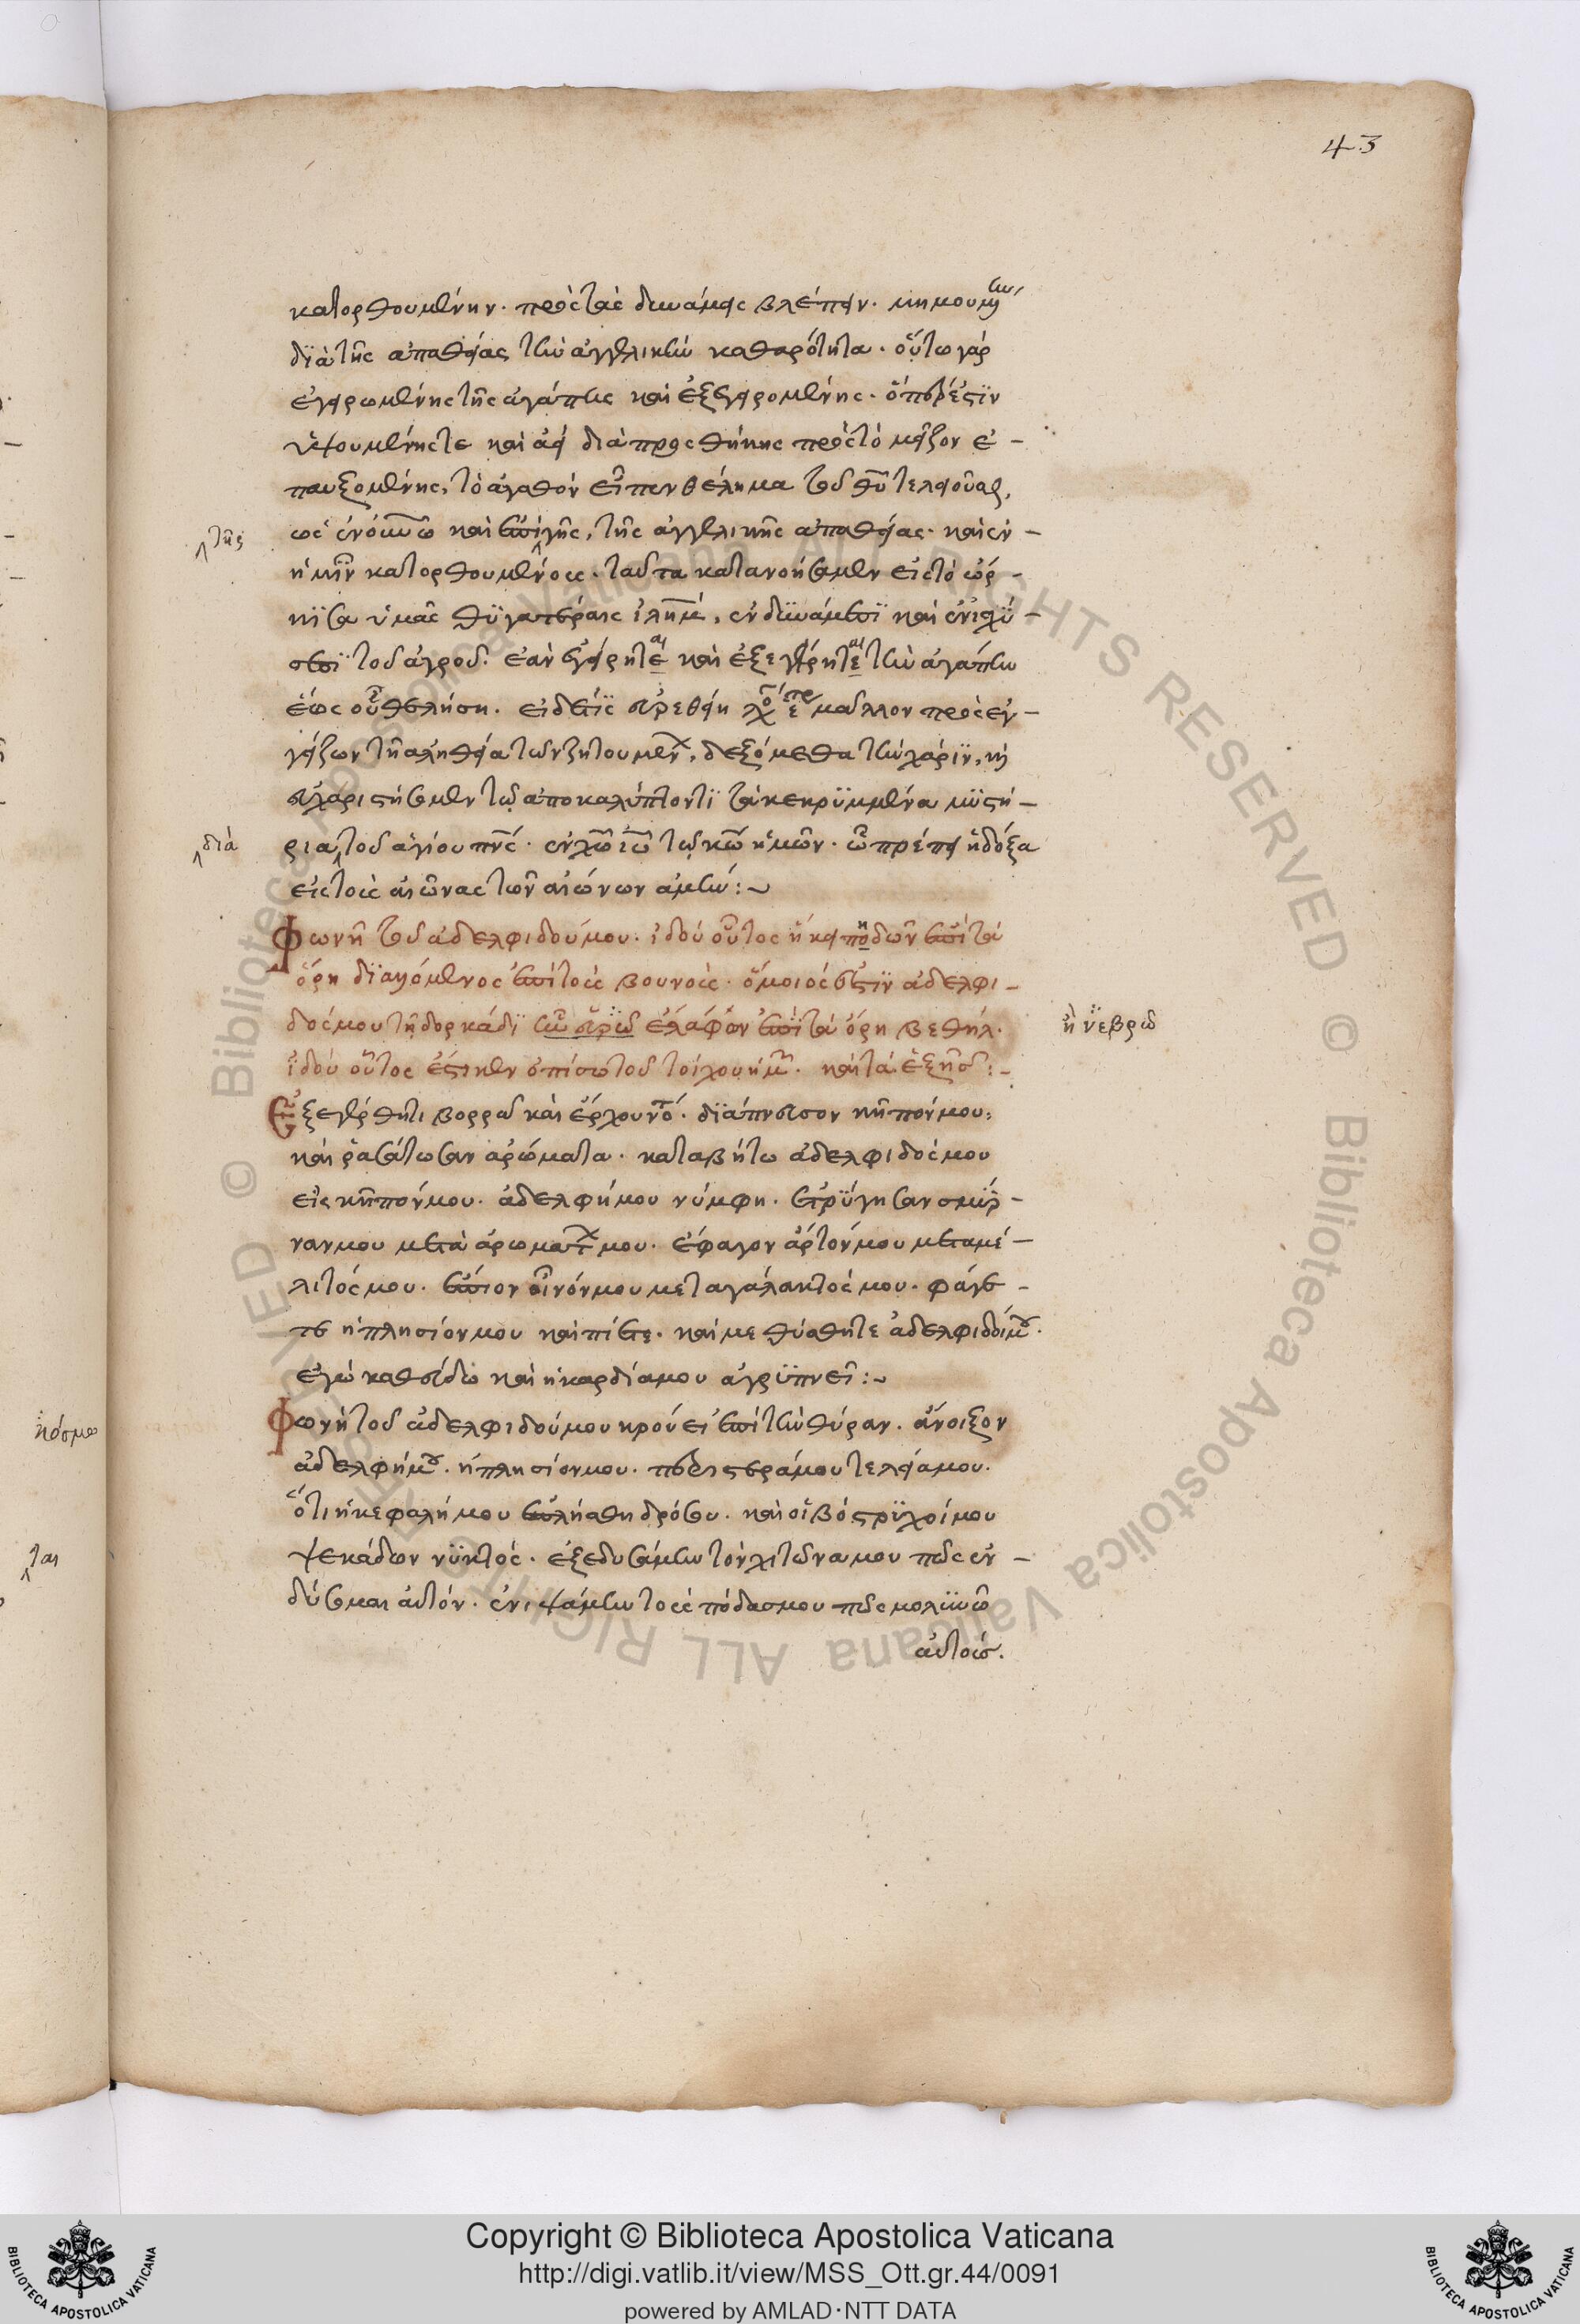 43
κατορθουμένην. πρὸς τὰς δυνάμεις βλέπειν. μιμουμένην
διὰ τῆς ἀπαθείας τὴν ἀγγελικὴν καθαρότητα. οὕτω γὰρ
ἐγειρωμένης τῆς ἀγάπης καὶ ἐξεγειρομένης. ὅπερ ἐστὶν
ὑψουμένης τε καὶ ἀεὶ διὰ προσθήκης πρὸς τὸ μεῖζον ἐ-
παυξομένης, τὸ ἀγαθὸν εἶπεν θέλημα τοῦ θ̅υ̅ τελειοῦσθαι,
ὡς ἐν ὀυνῶ καὶ ἐπὶ γῆς, τῆς ἀγγελικῆς ἀπαθείας καὶ ἐν
⁁τῆς
ἡμῖν κατορθουμένοις. ταῦτα κατανοήσωμεν εἰς τὸ ὡρ-
κισα ὑμᾶς θυγατέραις ἰλημ, ἐν δυνάμεσι καὶ ἐν ἰσχύ-
σεσι τοῦ ἀγροῦ. ἐὰν ἐγείρητε καὶ ἐξεγείρητε τὴν ἀγάπην
ἕως οὗ θελήση. εἰ δέ τις εὑρεθείη λόγος ἕτερος μᾶλλον προσεγ-
γίζων τῆ ἀληθεία τῶν ζητουμένων, δεξόμεθα τὴν χάριν, καὶ
εὐχαριστήσωμεν τῶ ἀποκαλύπτοντι τὰ κεκρυμμένα μυστή-
ρια τοῦ ἁγίου π̅ν̅ς̅. ἐν χ̅ω̅ ι̅ω̅ τῶ κ̅ω̅ ἡμῶν. ὧ πρέπει ἡ δόξα
⁁διὰ
εἰς τοὺς αἰῶνας τῶν αἰώνων ἀμήν:~
Φωνὴ τοῦ ἀδελφιδού μου. ἰδού οὗτος ἥκει πηδῶν ἐπὶ τὰ
ὄρη διαλόμενος ἐπὶ τοὺς βουνούς. ὅμοιός ἐστιν ἀδελφι-
δός μου τῆ δορκάδι ἐλάφων ἐπὶ τὰ ὄρη βεθήλ.
ἢ νεβρῶ
ἰδού οὗτος ἕστηκεν ὀπίσω τοῦ τοίχου ἡμῶν. καὶ τὰ ἑξῆς:-
Ἐξεγέρθητι βορρᾶ καὶ ἔρχου νότε. διάπνευσον κῆπόν μου:
καὶ ῥευσάτωσαν ἀρώματα. καταβήτω ἀδελφιδός μου
εἰς κῆπόν μου. ἀδελφή μου νύμφη. ἐτρύγησαν σμύρ-
ναν μου μετὰ ἀρωμάτων μου. ἔφαγον ἄρτον μου μετα μέ-
λιτός μου. ἔπιον οἶνόν μου μετα γάλακτός μου. φάγε-
τε ἡ πλησίον μου καὶ πίετε. καὶ μεθύσθητε ἀδελφιδοί μου.
ἐγὼ καθεύδω καὶ ἡ καρδία μου ἀγρυπνεῖ:~
Φωνὴ τοῦ ἀδελφιδού μου κρούει ἐπὶ τὴν θύραν. ἄνοιξον
ἀδελφή μου. ἡ πλησίον μου. περιστερά μου τελεία μου.
ὅτι ἡ κεφαλή μου ἐπλήσθη δρόσου. καὶ οἱ βόστρυχοί μου
ψεκάδων νυκτός. ἐξεδυσάμην τὸν χιτῶνα μου πῶς ἐν-
δύσωμαι αὐτόν. ἐνιψάμην τοὺς πόδας μου πῶς μολυνῶ
αὐτούς.
Copyright © Biblioteca Apostolica Vaticana
http://digi.vatlib.it/view/MSS_Ott.gr.44/0091
powered by AMLAD·NTT DATA